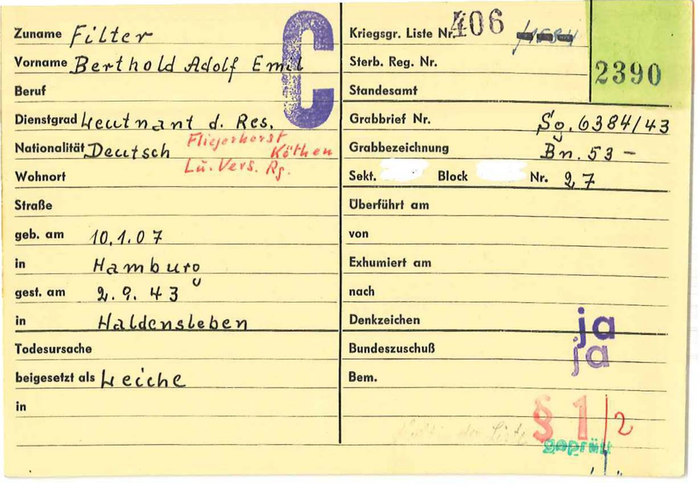 Zuname Filter
Vorname Berthold Adolf Emil
Beruf
Dienstgrad Leutnant d. Res.
Nationalität Deutsch Fliegerhorst Köthen
Lu. Vers. Rg.
Wohnort
Straße
geb. am 10.1.07
in Hamburg
gest. am 2.9.43
in Haldensleben
Todesursache
beigesetzt als Leiche
in
C
Kriegsgr. Liste Nr. 406
2390
Sterb. Reg. Nr.
Standesamt
Grabbrief Nr. Sg. 6384/43
Grabbezeichnung Bn. 53 –
Sekt. Block Nr. 27
Überführt am
von
Exhumiert am
nach
Denkzeichen ja
Bundeszuschuß ja
Bem.
§ 1/2
geprüft